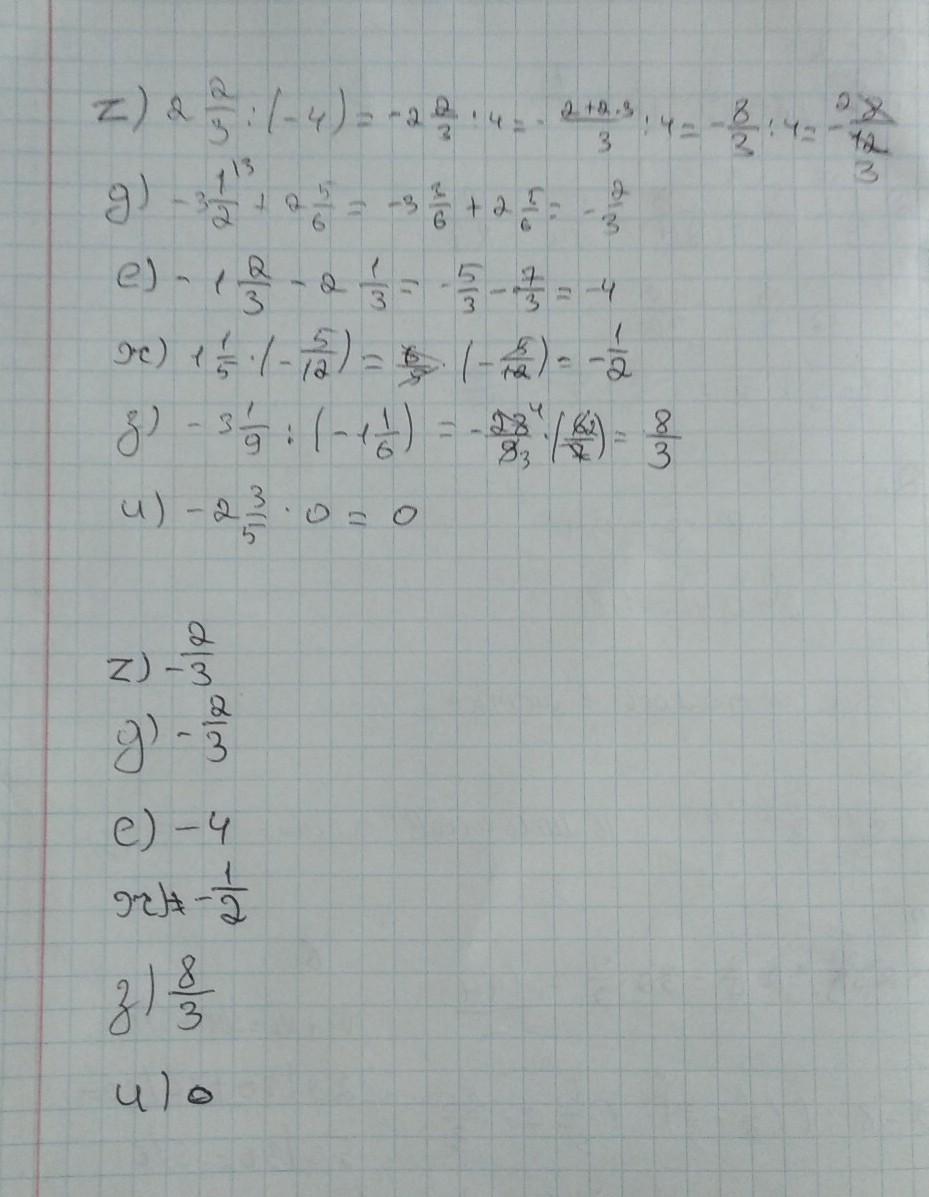 г) 2 2/3 : (-4) = -2 2/3 : 4 = - (2+2·3)/3 : 4 = - 8/3 : 4 = - 8/12 2/3
д) -3 1/2 \3 + 2 5/6 = -3 3/6 + 2 5/6 = - 2/3
е) -1 2/3 - 2 1/3 = - 5/3 - 7/3 = -4
ж) 1 1/5 · (- 5/12) = 6/5 · (- 5/12) = - 1/2
з) -3 1/9 : (-1 1/6) = - 28/9 4/3 · (6/7) = 8/3
и) -2 3/5 · 0 = 0
г) - 2/3
д) - 2/3
е) -4
ж) - 1/2
з) 8/3
и) 0